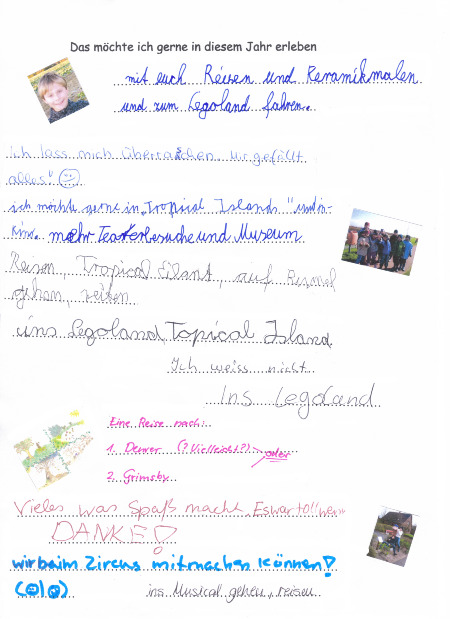 Das möchte ich gerne in diesem Jahr erleben
mit euch Reisen und Keramikmalen
und zum Legoland fahren.
ich lass mich überraschen. Mir gefällt
alles!
ich möchte gerne in „Tropical Islands" und in
Kino. mehr Teaterbesuche und Museum
Reisen, Tropical Eilant, auf Rummel
gehen, reiten
ins Legoland, Topical Island
Ich weiss nicht
Ins Legoland
Eine Reise nach:
1. Denver (? Vielleicht?)
oder
2. Grimsby
Vieles was Spaß macht. Es war toll
DANKE!
wir beim Zircus mitmachen können!
ins Musical gehen, reisen